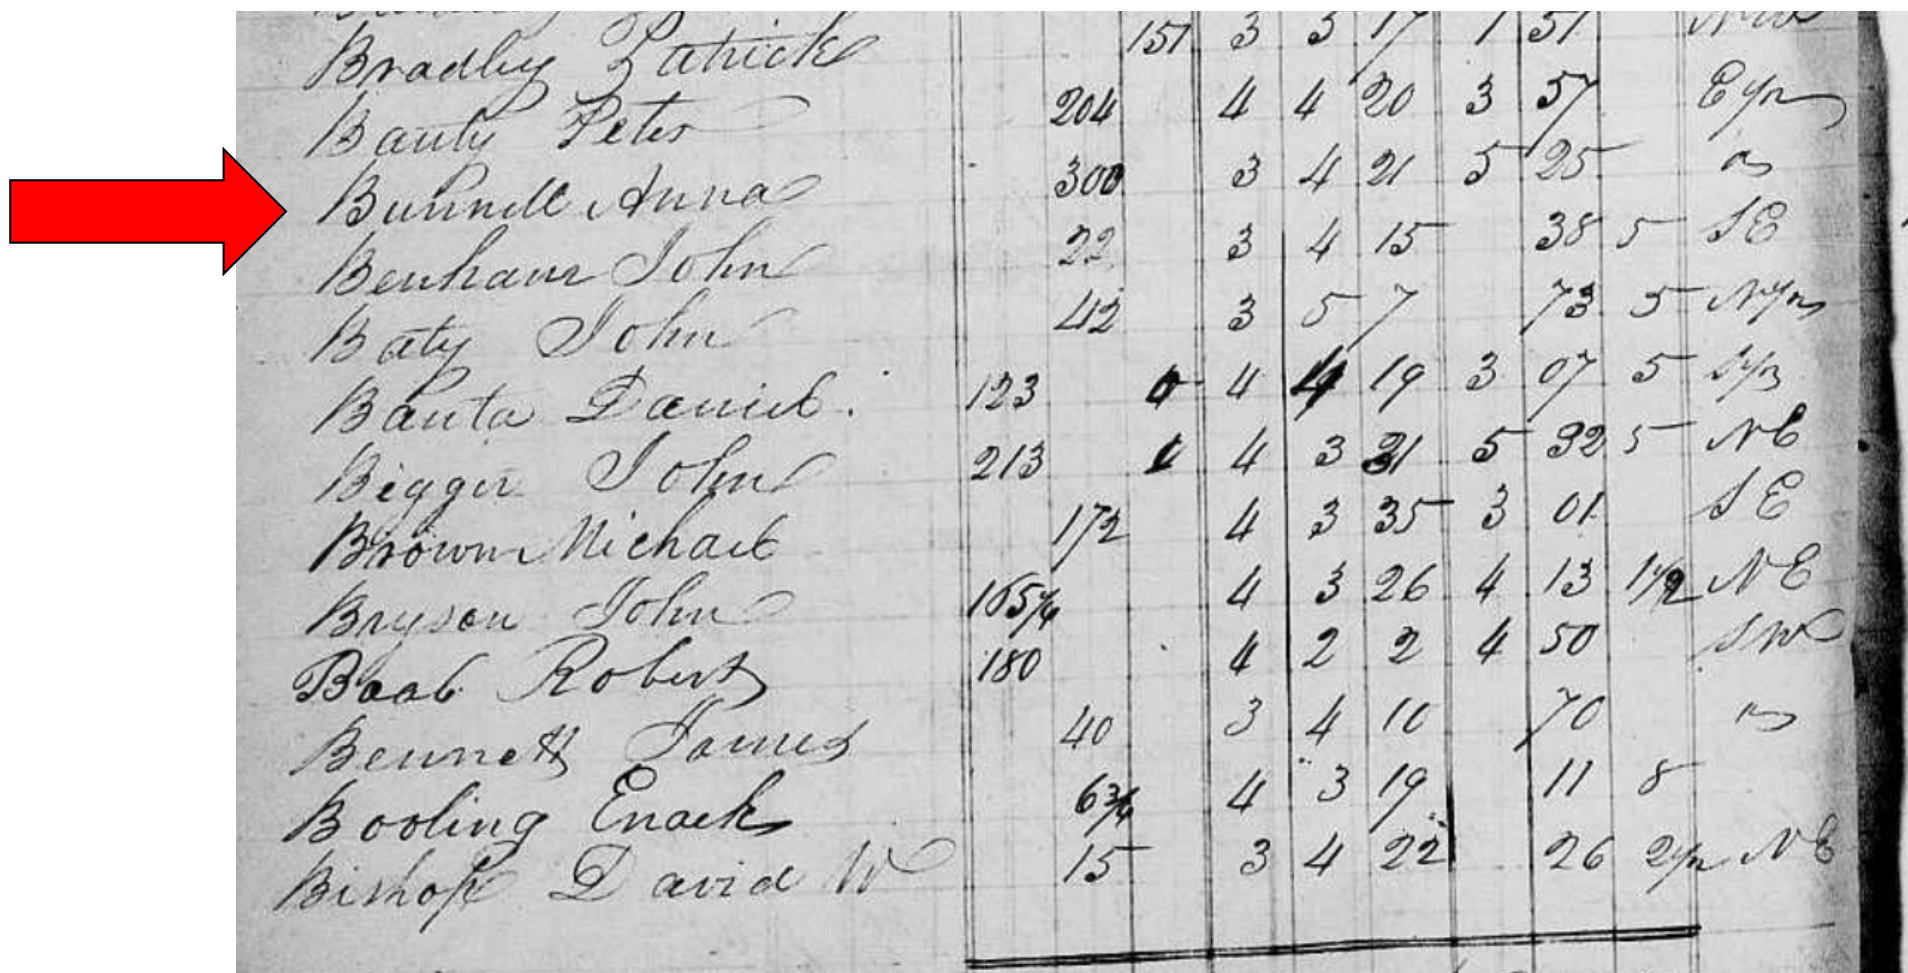 Bradley Patrick 151 3 3 17 1 51 NW
Bauty Peter 204 4 4 20 3 57 E½
Bunnell Anna 300 3 4 21 5 25
Benham John 22 3 4 15 38 5 SE
Baty John 42 3 5 7 73 5 N½
Banta Daniel 123 4 4 19 3 07 5 S½
Bigger John 213 4 3 31 5 32 5 NE
Brown Michael 172 4 3 35 3 01 SE
Bryson John 4 3 26 4 13 1½ NE
Boal Robert 180 4 2 2 4 50 SW
Bennett James 40 3 4 10 70
Booling Enack 6¾ 4 3 19 11 8
Bishop David W 15 3 4 22 26 2½ NE